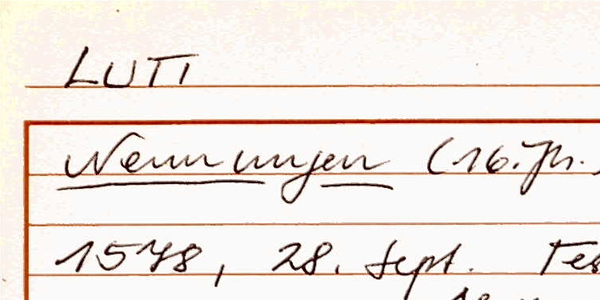 LUTI
Nennungen (16. Jh.)
1578, 28. Sept. Tes